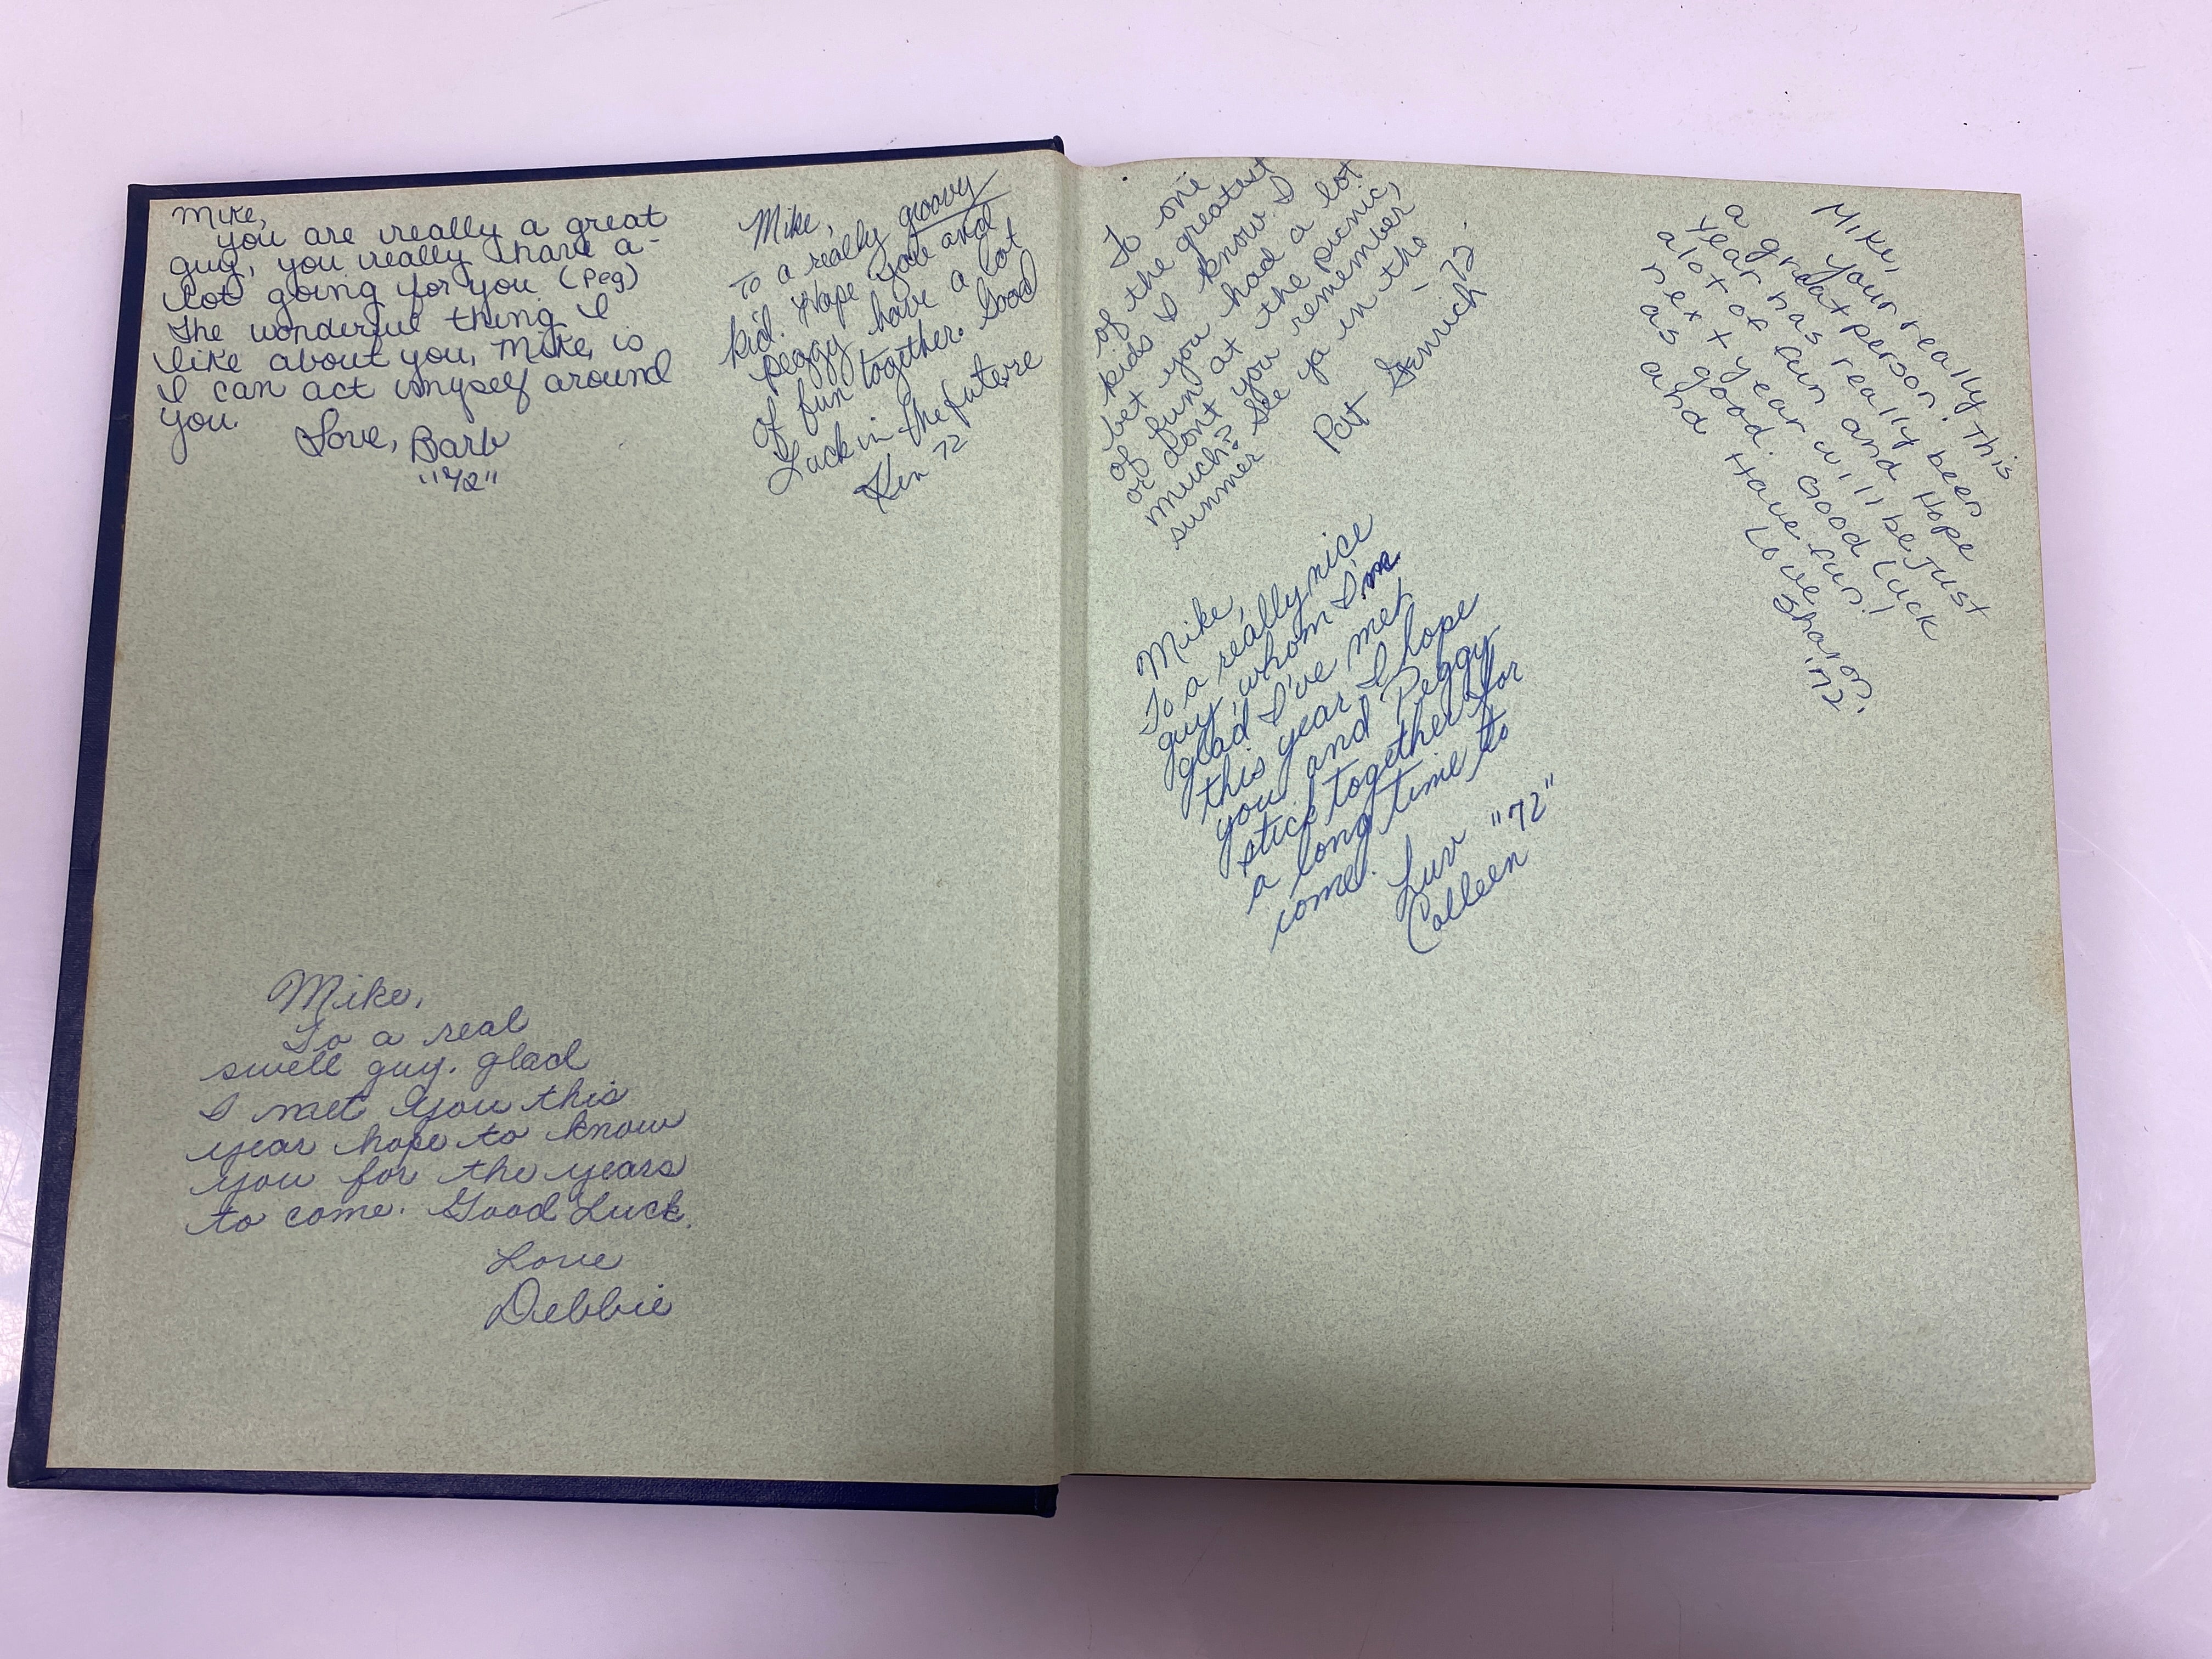 Mike,
you are really a great
guy, you really have a-
lot going for you (Peg)
The wonderful thing I
like about you, Mike, is
I can act myself around
you.
Love, Barb
"72"
Mike,
To a really groovy
kid. Hope you and
peggy have a lot
of fun together. Good
Luck in the future
Ken 72
Mike,
To a real
swell guy. glad
I met you this
year hope to know
you for the years
to come. Good Luck.
Love
Debbie
To one
of the greatest
kids I know. I
bet you had a lot
of fun at the picnic,
or don't you remember
much? See ya in the
summer
Pat - 72.
Mike,
To a really nice
guy, whom I'm
glad I've met
this year. I hope
you and Peggy
stick together for
a long time to
come.
Luv "72"
Colleen
Mike,
Your really
a great person! This
year has really been
alot of fun and Hope
next year will be just
as good. Good Luck
and Have fun!
Love,
Sharon,
'72